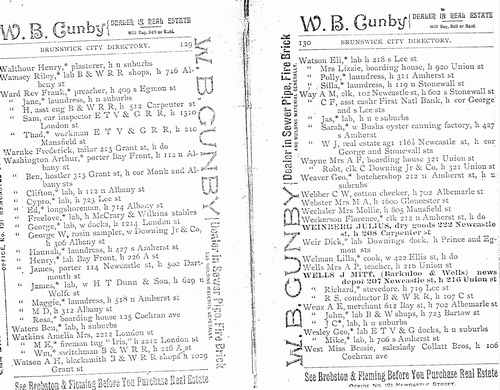 W. B. Gunby { DEALER IN REAL ESTATE
Will Buy, Sell or Rent.
BRUNSWICK CITY DIRECTORY. 129
Walthour Henry,* plasterer, h n suburbs
Wamsey Riley,* lab B & W R R shops, h 716 Albany
st
Ward Rev Frank,* preacher, h 409 s Egmon st
" Jane,* laundress, h n suburbs
" H, asst eng B & W R R, h 512 Carpenter st
" Sam, car inspector E T V & G R R, h 1310
London st
" Thad,* workman E T V & G R R, h 210
Mansfield st
Warnke Frederick, tailor 213 Grant st, h do
Washington Arthur,* porter Bay Front, h 112 n Albany
st
" Ben, hostler 513 Grant st, h cor Monk and Albany
sts
" Clifton,* lab, h 112 n Albany
" Cypto,* lab, h 723 Lee st
" Ed,* longshoreman, h 714 Albany st
" Freelove,* lab, h McCrary & Wilkins stables
" George,* lab, w docks, h 1214 London st
" George W, rosin sampler, w Downing Jr & Co,
h 306 Albany st
" Hannah,* laundress, h 427 s Amherst st
" Henry,* lab Bay Front, h 226 A st
" James, porter 114 Newcastle st, h 500 Dartmouth
st
" James,* lab, w H T Dunn & Son, h 629
Wolfe st
" Maggie,* laundress, h 518 n Amherst st
" M D, h 312 Albany st
" Rosa,* boarding house 125 Cochran ave
Waters Ben,* lab, h n suburbs
Watkins Amelia Mrs, 2212 London st
" M E,* fireman tug "Iris," h 2212 London st
" Wm,* switchman B & W R R, h 226 A st
Watson A H, blacksmith B & W R R shops h 1029
Grant st
See Brobston & Fleming Before You Purchase Real Estate
W.B.GUNBY Dealer in Sewer Pipe, Fire Brick
W. B. Gunby { DEALER IN REAL ESTATE
Will Buy, Sell or Rent.
130 BRUNSWICK CITY DIRECTORY.
Watson Eli,* lab h 218 s Lee st
" Mrs Lizzie, boarding house, h 920 Union st
" Polly,* laundress, h 311 Amherst st
" Silla,* laundress, h 119 n Stonewall st
Way A M, clk, 102 Newcastle st, h 602 s Stonewall st
" C F, asst cashr First Natl Bank, h cor George
and s Lee sts
" Jas,* lab, h n e suburbs
" Sarah,* w Bushs oyster canning factory, h 427
s Amherst
" W J, real estate agt 116½ Newcastle st, h cor
George and Stonewall sts
Wayne Mrs A F, boarding house 321 Union st
" Robt, clk C Downing Jr & Co, h 321 Union st
Weaver Geo,* butchershop 212 n Amherst st, h n
suburbs
Webber C W, cotton checker, h 702 Albemarle st
Webster Mrs M A, h 1600 Gloucester st
Wechsler Mrs Mollie, h 805 Mansfield st
Weckerson Florence,* clk 212 n Amherst st, h do
WEINBERG JULIUS, dry goods 222 Newcastle
st, h 208 Carpenter st
Weir Dick,* lab Downings dock, h Prince and Egmon
sts
Welman Lilla,* cook, w 422 Ellis st, h do
Wells Mrs A P, teacher, h 216 Union st
WELLS J MITT, (Barkuloo & Wells) news
depot 207 Newcastle st, h 216 Union st
" Richard,* stevedore. h 719 Lee st
" R S, conductor B & W R R, h 107 C st
Wear A E, merchant 612 Bay st, h 702 Albemarle st
" John,* lab B & W shops, h 723 Bartow st
" J C*, lab, h n suburbs
Wesley Geo,* lab E T V & G docks, h n suburbs
" Mike,* lab, h 706 s Amherst st
West Miss Bessie, saleslady Collatt Bros, h 106
Cochran ave
See Brobston & Fleming Before You Purchase Real Estate
W.B.GUNBY Dealer in Sewer Pipe, Fire Brick
AND BUILDING MATERIAL GENERALLY.